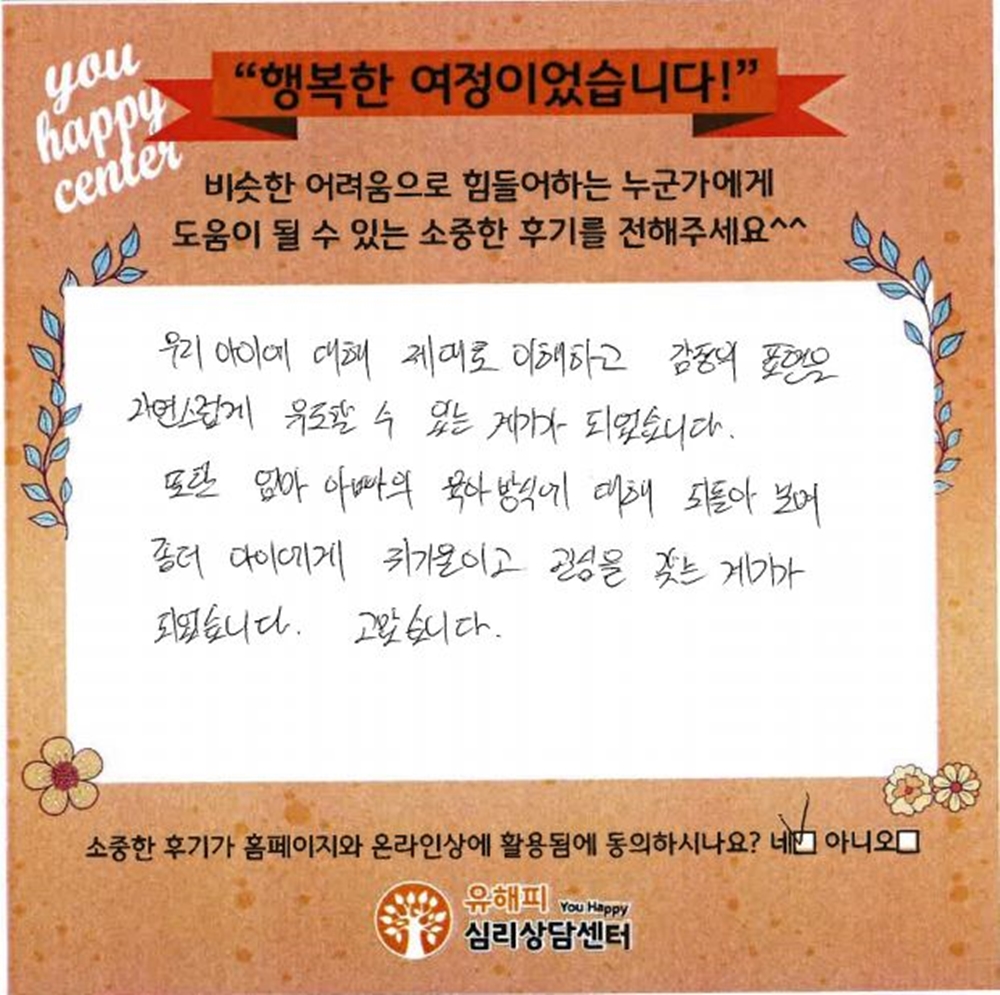 you
happy
center
“행복한 여정이었습니다!”
비슷한 어려움으로 힘들어하는 누군가에게
도움이 될 수 있는 소중한 후기를 전해주세요^^
우리 아이에 대해 제대로 이해하고 감정의 표현을
자연스럽게 유도할 수 있는 계기가 되었습니다.
또한 엄마 아빠의 육아방식에 대해 되돌아 보며
좀더 아이에게 귀기울이고 관심을 갖는 계기가
되었습니다. 고맙습니다.
소중한 후기가 홈페이지와 온라인상에 활용됨에 동의하시나요? 네 아니오
유해피 You Happy
심리상담센터